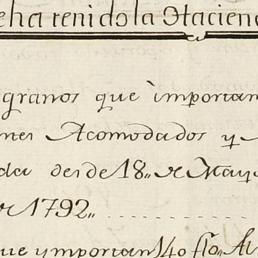 e ha tenido la Hacien
granos que importan
nes Acomodados y
da desde 18,, de May
1792,,
ue ymportan 140 flo,, Al